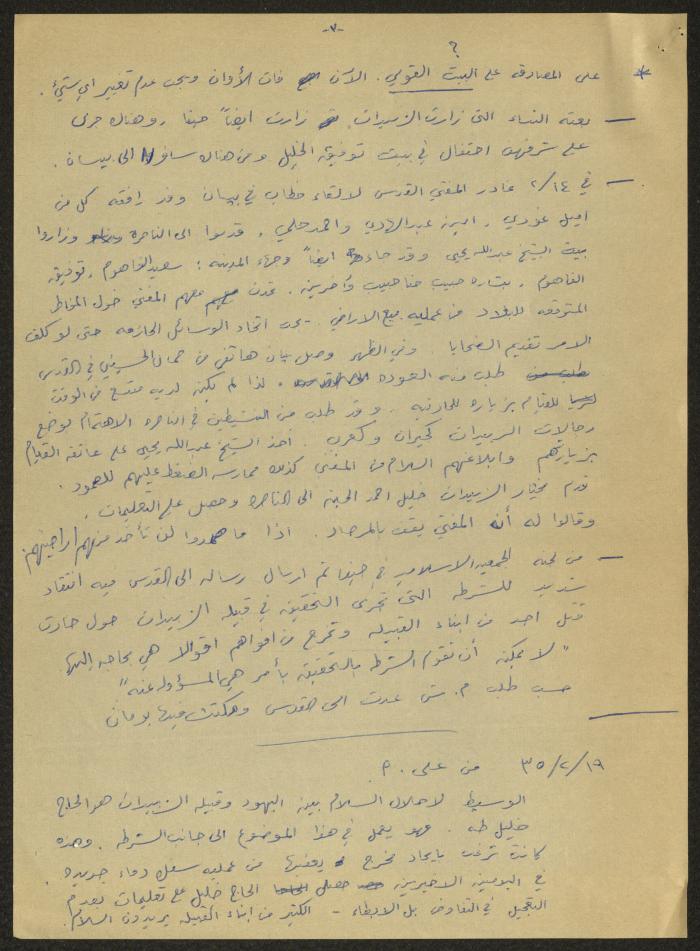 -٧-
؟
* على المصادقه على البيت القومي. الآن فات الأوان ويجب عدم تغيير اي شيء.
— بعثه النساء التي زارت الزبيدات زارت ايضاً حيفا, وهناك جرى
على شرفهن احتفال في بيت توفيق الخليل ومن هناك سافرن الى بيسان.
— في ٢/١٤ غادر المفتي القدس لالقاء خطاب في بيسان وقد رافقه كل من
اميل غوري, امين عبد الهادي واحمد حلمي, قدموا الى الناصره وزاروا
بيت الشيخ عبدالله يحيى وقد جاء ايضاً وجهاء المدينه: سعيد الفاهوم, توفيق
الفاهوم, بشاره حبيب حنا حبيب وآخرين. تحدث معهم المفتي حول المخاطر
المتوقعه للبلاد من عمليه بيع الاراضي. يجب اتخاذ الوسائل الحازمه حتى لو كلف
الامر تقديم الضحايا. وفي الظهر وصل بيان هاتفي من جمال الحسيني في القدس
طلب منه العوده. لذا لم يكن لديه متسع من الوقت
للقيام بزياره للحارثيه. وقد طلب من النشيطين في الناصره الاهتمام بوضع
رجالات الزبيدات كجيران وكعرب. أخذ الشيخ عبدالله يحيى على عاتقه القيام
بزيارتهم وابلاغهم السلام من المفتي كذلك ممارسه الضغط عليهم للصمود.
قدم مختار الزبيدات خليل احمد الحسين الى الناصره وحصل على التعليمات.
وقالوا له أن المفتي يقف بالمرصاد. اذا ما صمدوا لن تأخذ منهم اراضيهم.
— من لجنه الجمعيه الاسلاميه في حيفا تم ارسال رساله الى القدس فيه انتقاد
شديد للشرطه التي تجري التحقيق في قبيله الزبيدات حول حادث
قتل احد من ابناء القبيله وتخرج من افواهم اقوالا هي بحاجه اليها
"لا يمكن أن تقوم الشرطه بالتحقيق بأمر هي المسؤوله عنه"
حسب طلب م. ش عدت الى القدس ومكثت فيها يومان
٣٥/٢/١٩ من على. م.
الوسيط لاحلال السلام بين اليهود وقبيله الزبيدات هو الحاج
خليل طه. وهو يعمل في هذا الموضوع الى جانب الشرطه. وهذه
كانت ترغب بايجاد مخرج يعفيها من عمليه سفك دماء جديده.
في اليومين الاخيرين حصل الحاج خليل على تعليمات بعدم
التعجيل في التفاوض بل الابطاء - الكثير من ابناء القبيله يريدون السلام.